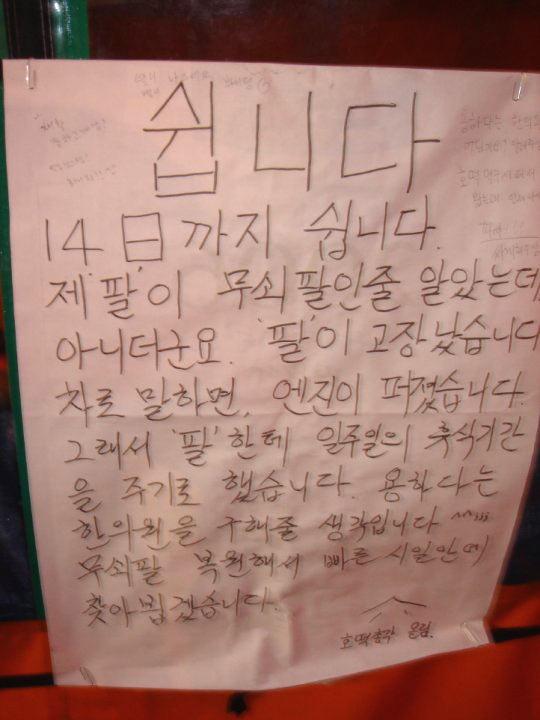 쉽니다
14日까지 쉽니다.
제 '팔'이 무쇠팔인줄 알았는데,
아니더군요. '팔'이 고장났습니다
차로 말하면, 엔진이 퍼졌습니다.
그래서 '팔'한테 일주일의 휴식기간
을 주기로 했습니다. 용하다는
한의원을 구해줄 생각입니다 ^^;;;
무쇠팔 복원해서 빠른 시일안에
찾아뵙겠습니다.
호떡총각 올림.
용하다는 한의원
호떡